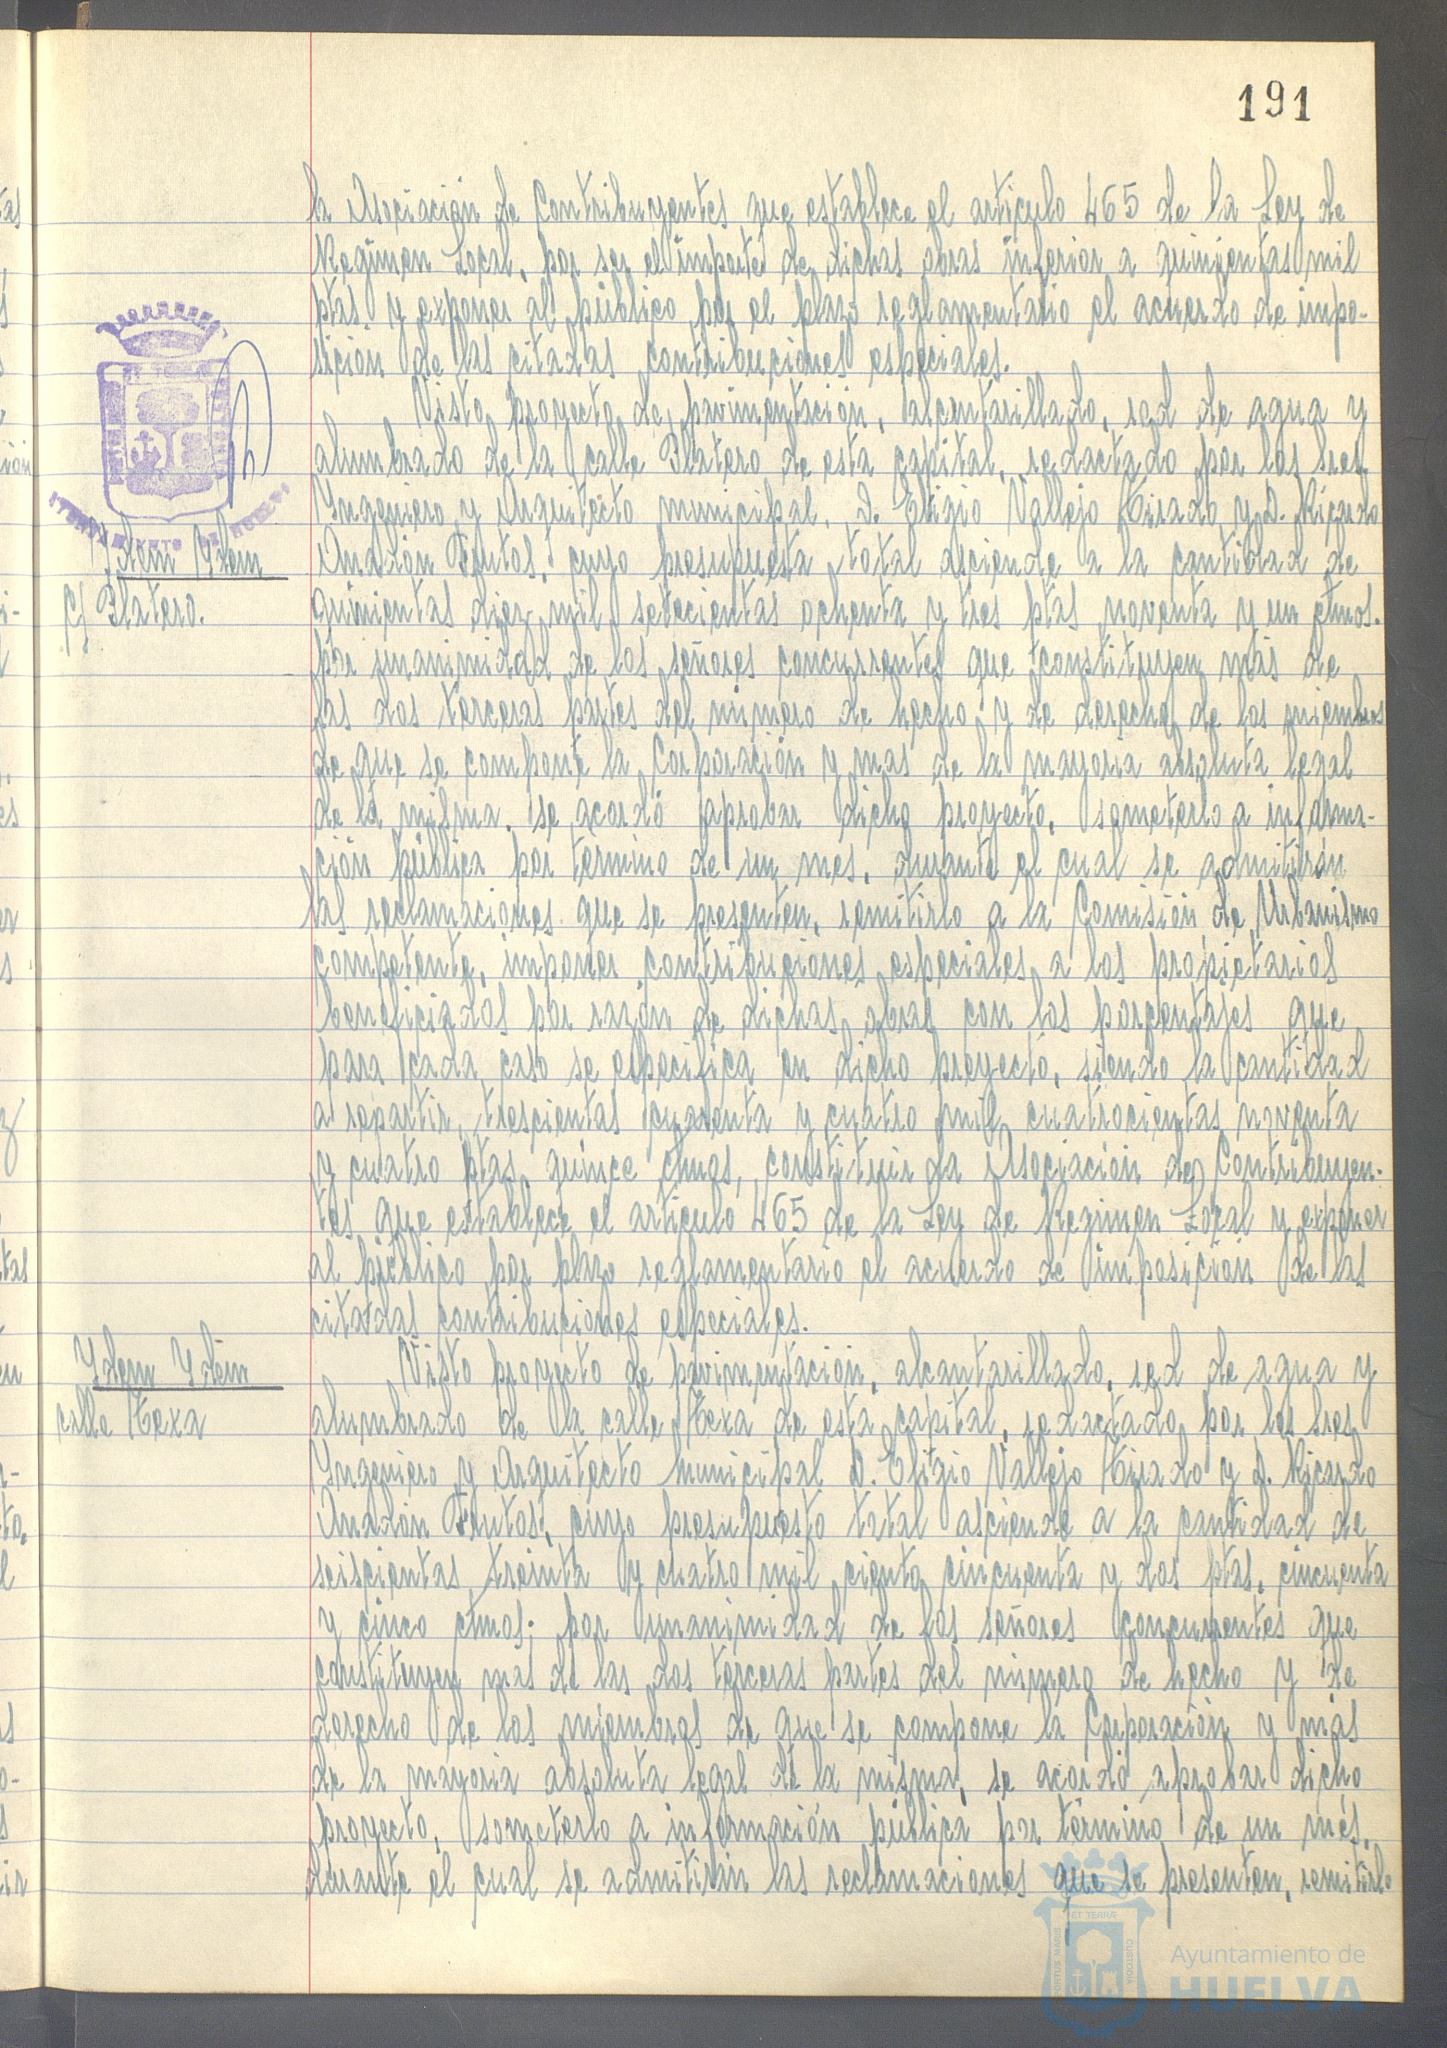 191
la Asociación de Contribuyentes que establece el articulo 465 de la Ley de
Regimen Local, por ser el importe de dichas obras inferior a quinientas mil
ptas y exponer al público por el plazo reglamentario el acuerdo de impo-
sición de las citadas contribuciones especiales.
Visto proyecto de pavimentación, alcantarillado, red de agua y
alumbrado de la calle Platero de esta capital, redactado por los sres
Ingeniero y Arquitecto municipal, D. Eligio Vallejo Tirado y D. Ricardo
Idem Idem
Anadón Frutos, cuyo presupuesta total asciende a la cantidad de
C/ Platero.
quinientas diez mil setecientas ochenta y tres ptas noventa y un ctmos.
por unanimidad de los señores concurrentes que constituyen más de
las dos terceras partes del número de hecho y de derecho de los miembros
de que se compone la Corporación y mas de la mayoría absoluta legal
de la misma, se acordó aprobar dicho proyecto, someterlo a informa-
ción pública por termino de un mes, durante el cual se admitirán
las reclamaciones que se presenten, remitirlo a la Comisión de Urbanismo
competente, imponer contribuciones especiales a los propietarios
beneficiados por razón de dichas obras con los porcentajes que
para cada caso se especifica en dicho proyecto, siendo la cantidad
a repartir, trescientas cuarenta y cuatro mil cuatrocientas noventa
y cuatro ptas quince ctmos, constituir la Asociación de Contribuyen-
tes que establece el articulo 465 de la Ley de Regimen Local y exponer
al público por plazo reglamentario el acuerdo de imposición de las
citadas contribuciones especiales.
Idem Idem
Visto proyecto de pavimentación, alcantarillado, red de agua y
calle
alumbrado de la calle de esta capital, redactado por los sres
Ingeniero y Arquitecto municipal D. Eligio Vallejo Tirado y D. Ricardo
Anadón Frutos, cuyo presupuesto total asciende a la cantidad de
seiscientas treinta y cuatro mil ciento cincuenta y dos ptas. cincuenta
y cinco ctmos; por unanimidad de los señores concurrentes que
constituyen mas de las dos terceras partes del número de hecho y de
derecho de los miembros de que se compone la Corporación y más
de la mayoria absoluta legal de la misma, se acordó aprobar dicho
proyecto, someterlo a información pública por término de un més,
durante el cual se admitirán las reclamaciones que se presenten, remitirlo
Ayuntamiento de
HUELVA